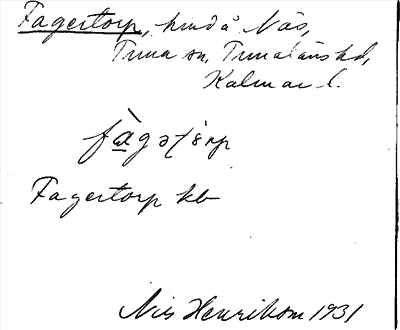 Fagertorp, hmd å Näs,
Tuna sn, Tunaläns hd,
Kalmar l.
fàgətårp
Fagertorp kb
Nils Henrikson 1931